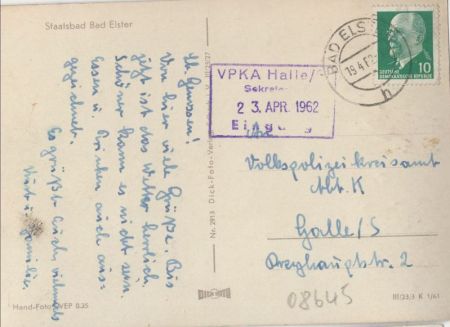 Staatsbad Bad Elster
Lb. Genossen!
Von hier viele Grüße. Bis
jetzt ist das Wetter herrlich.
Schöner kann es nicht sein.
Essen u. Trinken auch aus-
gezeichnet.
Es grüßt Euch vielmals
Kurt u. Familie
Hand-Foto VEP 0.35
Nr. 2913 Dick-Foto-Verl
BAD ELST
19.4.62
h
10
DEUTSCHE
DEMOKRATISCHE REPUBLIK
VPKA Halle/
Sekre
2 3. APR. 1962
Eing g
Volkspolizeikreisamt
Abt. K
Halle/S
Dreyhauptstr. 2
08645
III/23/3 K 1/61